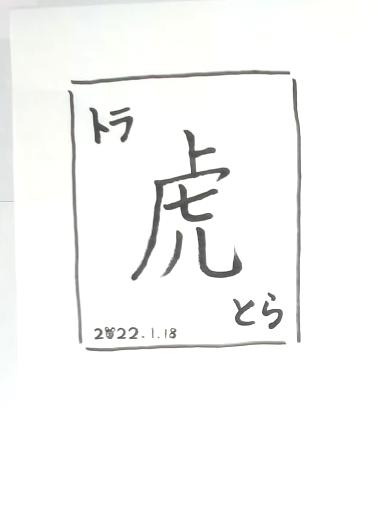 トラ
虎
とら
2022.1.18